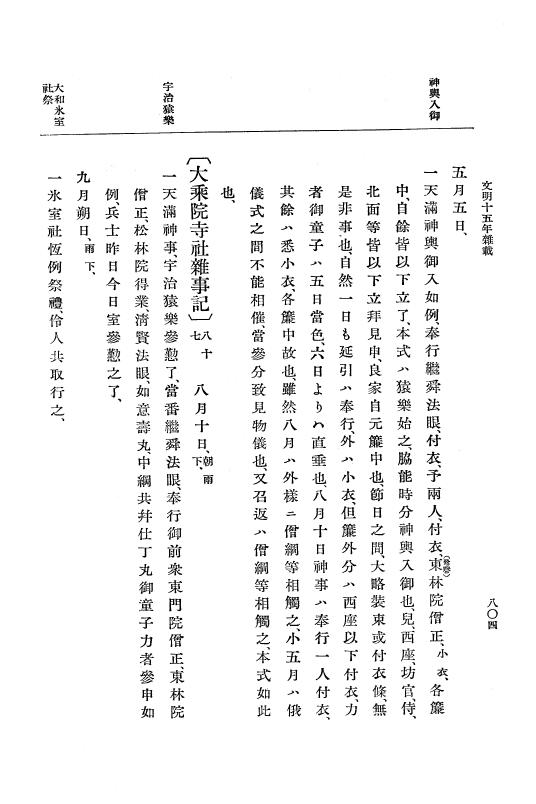 文明十五年雜載
八〇四
神輿入御
宇治猿樂
大和氷室
社祭
五月五日、
一天滿神輿御入如例、奉行繼舜法眼、付衣、予兩人、付衣、東林院僧正、小衣、各簾
中、自餘皆以下立了、本式ハ猿樂始之、脇能時分神輿入御也、兒、西座、坊官、侍、
北面等皆以下立拜見申、良家自元簾中也、節日之間、大略裝束或付衣條、無
是非事也、自然一日も延引ハ奉行、外ハ小衣、但簾外分ハ西座以下付衣、力
者御童子ハ五日當色、六日よりハ直垂也、八月十日神事ハ奉行一人付衣、
其餘ハ悉小衣、各簾中故也、雖然八月ハ外樣ニ僧綱等相觸之、小五月ハ俄
儀式之間不能相催、當參分致見物儀也、又召返ハ僧綱等相觸之、本式如此
也、
〔大乘院寺社雜事記〕八十七 八月十日、朝雨下、
一天滿神事、宇治猿樂參懃了、當番繼舜法眼、奉行御前衆東門院僧正、東林院
僧正、松林院得業、淸賢法眼、如意壽丸、中綱共幷仕丁丸御童子力者參申如
例、兵士昨日今日室參懃之了、
九月朔日、雨下、
一氷室社恆例祭禮、伶人共取行之、